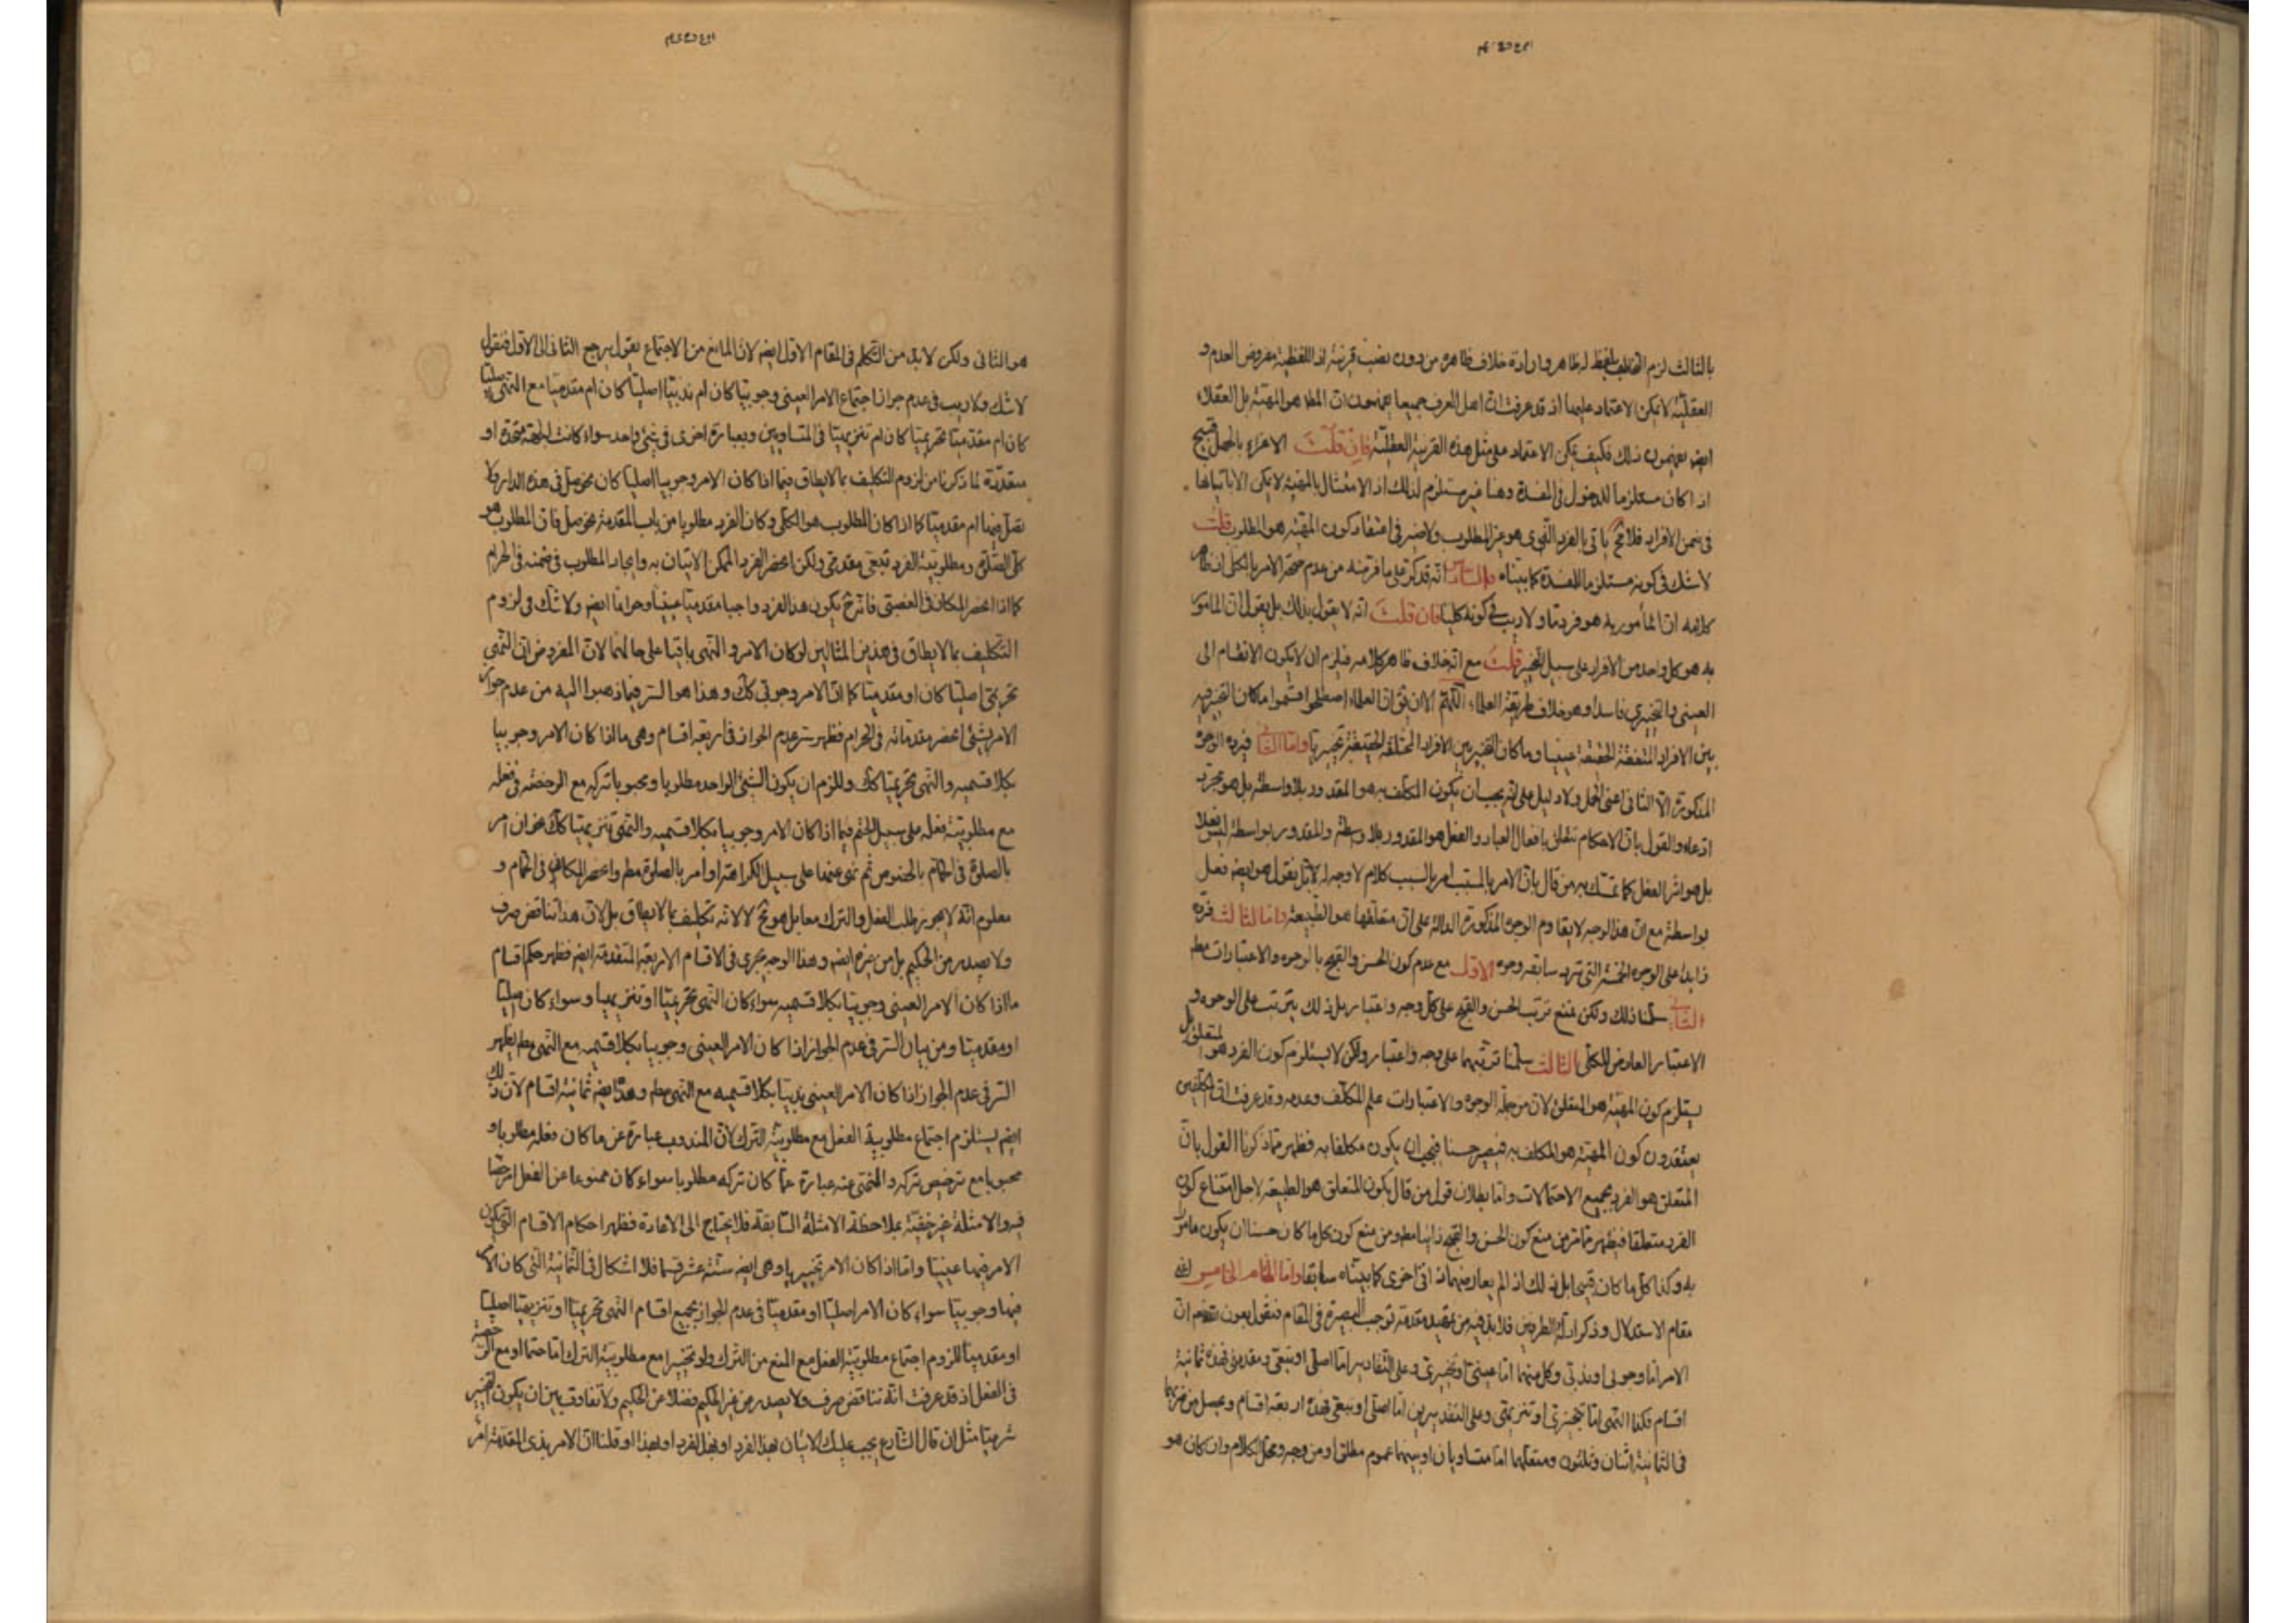 بالثالث لزم التكليف بلفظ له ظاهر وارادة خلاف ظاهره من دون نصب قرينة اذ اللفظية مفروض العدم و
العقلية لا يمكن الاعتماد عليها اذ قد عرفت ان اهل العرف جميعا يفهمون ان المط هو المهية بل العقلاء
ايضا يفهمون ذلك فكيف يمكن الاعتماد على مثل هذه القرينة العقلية فان قلت الاغراء بالجهل قبيح
اذا كان مستلزما للدخول في المفسدة وهنا غير مستلزم لذلك اذ الامتثال بالمهية لا يمكن الا باتيانها
في ضمن الافراد فلا محـ ياتي بالفرد الذي هو عين المطلوب ولا ضير في اعتقاد كون المهية هو المطلوب قلت
لا شك في كونه مستلزما للمفسدة كما بيناه والسادس انه قد كر على ما فر منه من عدم صحة الامر بالكلي اذ ظاهر
كلامه ان المأمور به هو فرد ما ولا ريب في كونه كليا فان قلت انه لا يقول بذلك بل يقول ان المامور
به هو كل واحد من الافراد على سبيل التخيير قلت مع انه خلاف ظاهر كلامه فيلزم ان لا يكون الانقسام الى
العيني والتخييري فاسدا وهو خلاف طريقة العلماء اللهم الا ان يق ان العلماء اصطلحوا فسموا ما كان التخيير فيه
بين الافراد المتفقة الحقيقة عينيا وما كان التخيير بين الافراد المختلفة الحقيقة تخييريا واما الثاني فيرده الوجوه
المذكورة الا الثاني اعني الحمل ولا دليل على انه يجب ان يكون المكلف به هو المقدور بلا واسطة بل هو مجرد
ادعاء والقول بان الاحكام تتعلق بافعال العباد والفعل هو المقدور بلا واسطة والمقدور بواسطة ليس فعلا
بل هو اثر الفعل كما تمسك به من قال بان الامر بالمسبب امر بالسبب كلام لا وجه له لانا نقول هو ايضا فعل
بواسطة مع ان هذا الوجه لا يقاوم الوجوه المذكورة الدالة على ان متعلقها هو الطبيعة واما الثالث فيرده
زايدا على الوجوه الخمسة التي ترد سابقه وجوه الاول مع عدم كون الحسن والقبح بالوجوه والاعتبارات مطـ
الثاني سلمنا ذلك ولكن نمنع ترتب الحسن والقبح على كل وجه واعتبار بل ذلك يترتب على الوجوه و
الاعتبار العارض للكلي الثالث سلمنا ترتبهما على وجه واعتبار ولكن لا يستلزم كون الفرد هو المتعلق بل
يستلزم كون المهية هو المتعلق لان من جملة الوجوه والاعتبارات علم المكلف وعدمه وقد عرفت ان المكلفين
يعتقدون كون المهية هو المكلف به فيصير حسنا فيجب ان يكون مكلفا به فظهر مما ذكرنا القول بان
المتعلق هو الفرد بجميع الاحتمالات واما بطلان قول من قال بكون المتعلق هو الطبيعة لاجل امتناع كون
الفرد متعلقا فيظهر مما مر من منع كون الحسن والقبح ذاتيا مطـ ومن منع كون كل ما كان حسنا ان يكون مامورا
به وكذا كل ما كان قبيحا بل ذلك اذا لم يعارضهما ذاتي اخرى كما بيناه سابقا واما المقام الخامس اعني
مقام الاستدلال وذكر ادلة الطرفين فلا بد فيه من تمهيد مقدمة توجب البصيرة في المقام فنقول بعون الله ان
الامر اما وجوبي او ندبي وكل منهما اما عيني او تخييري وعلى التقادير اما اصلي او تبعي ومقدمي فهذه ثمانية
اقسام فكذا النهي اما تحريمي او تنزيهي وعلى التقديرين اما اصلي او تبعي فهذه اربعة اقسام ويحصل من ضربها
في الثمانية اثنان وثلثون ومتعلقهما اما متساويان او بينهما عموم مطلق او من وجه ومحل الكلام وان كان هو
هو الثاني ولكن لا بد من التكلم في المقام الاول ايضا لان المانع من الاجتماع يقول يرجع الثاني الى الاول فنقول
لا شك ولا ريب في عدم جواز اجتماع الامر العيني وجوبيا كان ام ندبيا اصليا كان ام مقدميا مع النهي اصليا
كان ام مقدميا تحريميا كان ام تنزيهيا في المتساويين وبعبارة اخرى في شيء واحد سواء كانت الجهة متحدة او
متعددة لما ذكرنا من لزوم التكليف بما لا يطاق فيما اذا كان الامر وجوبيا اصليا كان نحو صل في هذه الدار ولا
تصل فيها ام مقدميا كما اذا كان المطلوب هو الكلي وكان الفرد مطلوبا من باب المقدمة نحو صل فان المطلوب هو
كلي الصلوة ومطلوبية الفرد تبعي مقدمي ولكن انحصر الفرد الممكن الاتيان به وايجاد المطلوب في ضمنه في الحرام
كما اذا انحصر المكان في الغصبي فانه ح يكون هذا الفرد واجبا مقدميا عينيا وحراما ايضا ولا شك في لزوم
التكليف بما لا يطاق في هذين المثالين لو كان الامر والنهي باقيا على حالهما لان المفروض ان النهي
تحريمي اصليا كان او مقدميا كما ان الامر وجوبي كك وهذا هو السر فيما ذهبوا اليه من عدم جواز
الامر بشيء انحصر مقدماته في الحرام فظهر سر عدم الجواز في اربعة اقسام وهي ما اذا كان الامر وجوبيا
بكلا قسميه والنهي تحريميا كك وللزوم ان يكون الشيء الواحد مطلوبا ومحبوبا تركه مع الرخصة في فعله
مع مطلوبية فعله على سبيل الحتم فيما اذا كان الامر وجوبيا بكلا قسميه والنهي تنزيهيا كك نحو ان امر
بالصلوة في الحمام بالخصوص ثم نهى عنها على سبيل الكراهة او امر بالصلوة مطـ وانحصر المكان في الحمام و
معلوم انه لا يجوز طلب الفعل والترك معا بل هو مح لا لانه تكليف بما لا يطاق بل لان هذا تناقض صرف
ولا يصدر من الحكيم بل من غيره ايضا وهذا الوجه يجري في الاقسام الاربعة المتقدمة ايضا فظهر حكم اقسام
ما اذا كان الامر العيني وجوبيا بكلا قسميه سواء كان النهي تحريميا او تنزيهيا وسواء كان اصليا
او مقدميا ومن بيان السر في عدم الجواز اذا كان الامر العيني وجوبيا بكلا قسميه مع النهي مطـ يظهر
السر في عدم الجواز اذا كان الامر العيني ندبيا بكلا قسميه مع النهي مطـ وهذا ايضا ثمانية اقسام لان ذلك
ايضا يستلزم اجتماع مطلوبية الفعل مع مطلوبية الترك لان المندوب عبارة عن ما كان فعله مطلوبا و
محبوبا مع ترخيص تركه والمنهي عنه عبارة عما كان تركه مطلوبا سواء كان ممنوعا عن الفعل او مرخصا
فيه والامثلة غير خفية بملاحظة الامثلة السابقة فلا يحتاج الى الاعادة فظهر احكام الاقسام التي يكون
الامر فيها عينيا واما اذا كان الامر تخييريا وهي ايضا ستة عشر قسما فلا اشكال في الثمانية التي كان الامر
فيها وجوبيا سواء كان الامر اصليا او مقدميا في عدم الجواز بجميع اقسام النهي تحريميا او تنزيهيا اصليا
او مقدميا للزوم اجتماع مطلوبية الفعل مع المنع من الترك ولو تخييرا مع مطلوبية الترك اما حتما او مع الرخصة
في الفعل اذ قد عرفت انه تناقض صرف ولا يصدر من غير الحكيم فضلا عن الحكيم ولا تفاوت بين ان يكون التخيير
شرعيا مثل ان قال الشارع يجب عليك الاتيان بهذا الفرد او بهذا الفرد او بهذا او قلنا ان الامر بذي المقدمة امر